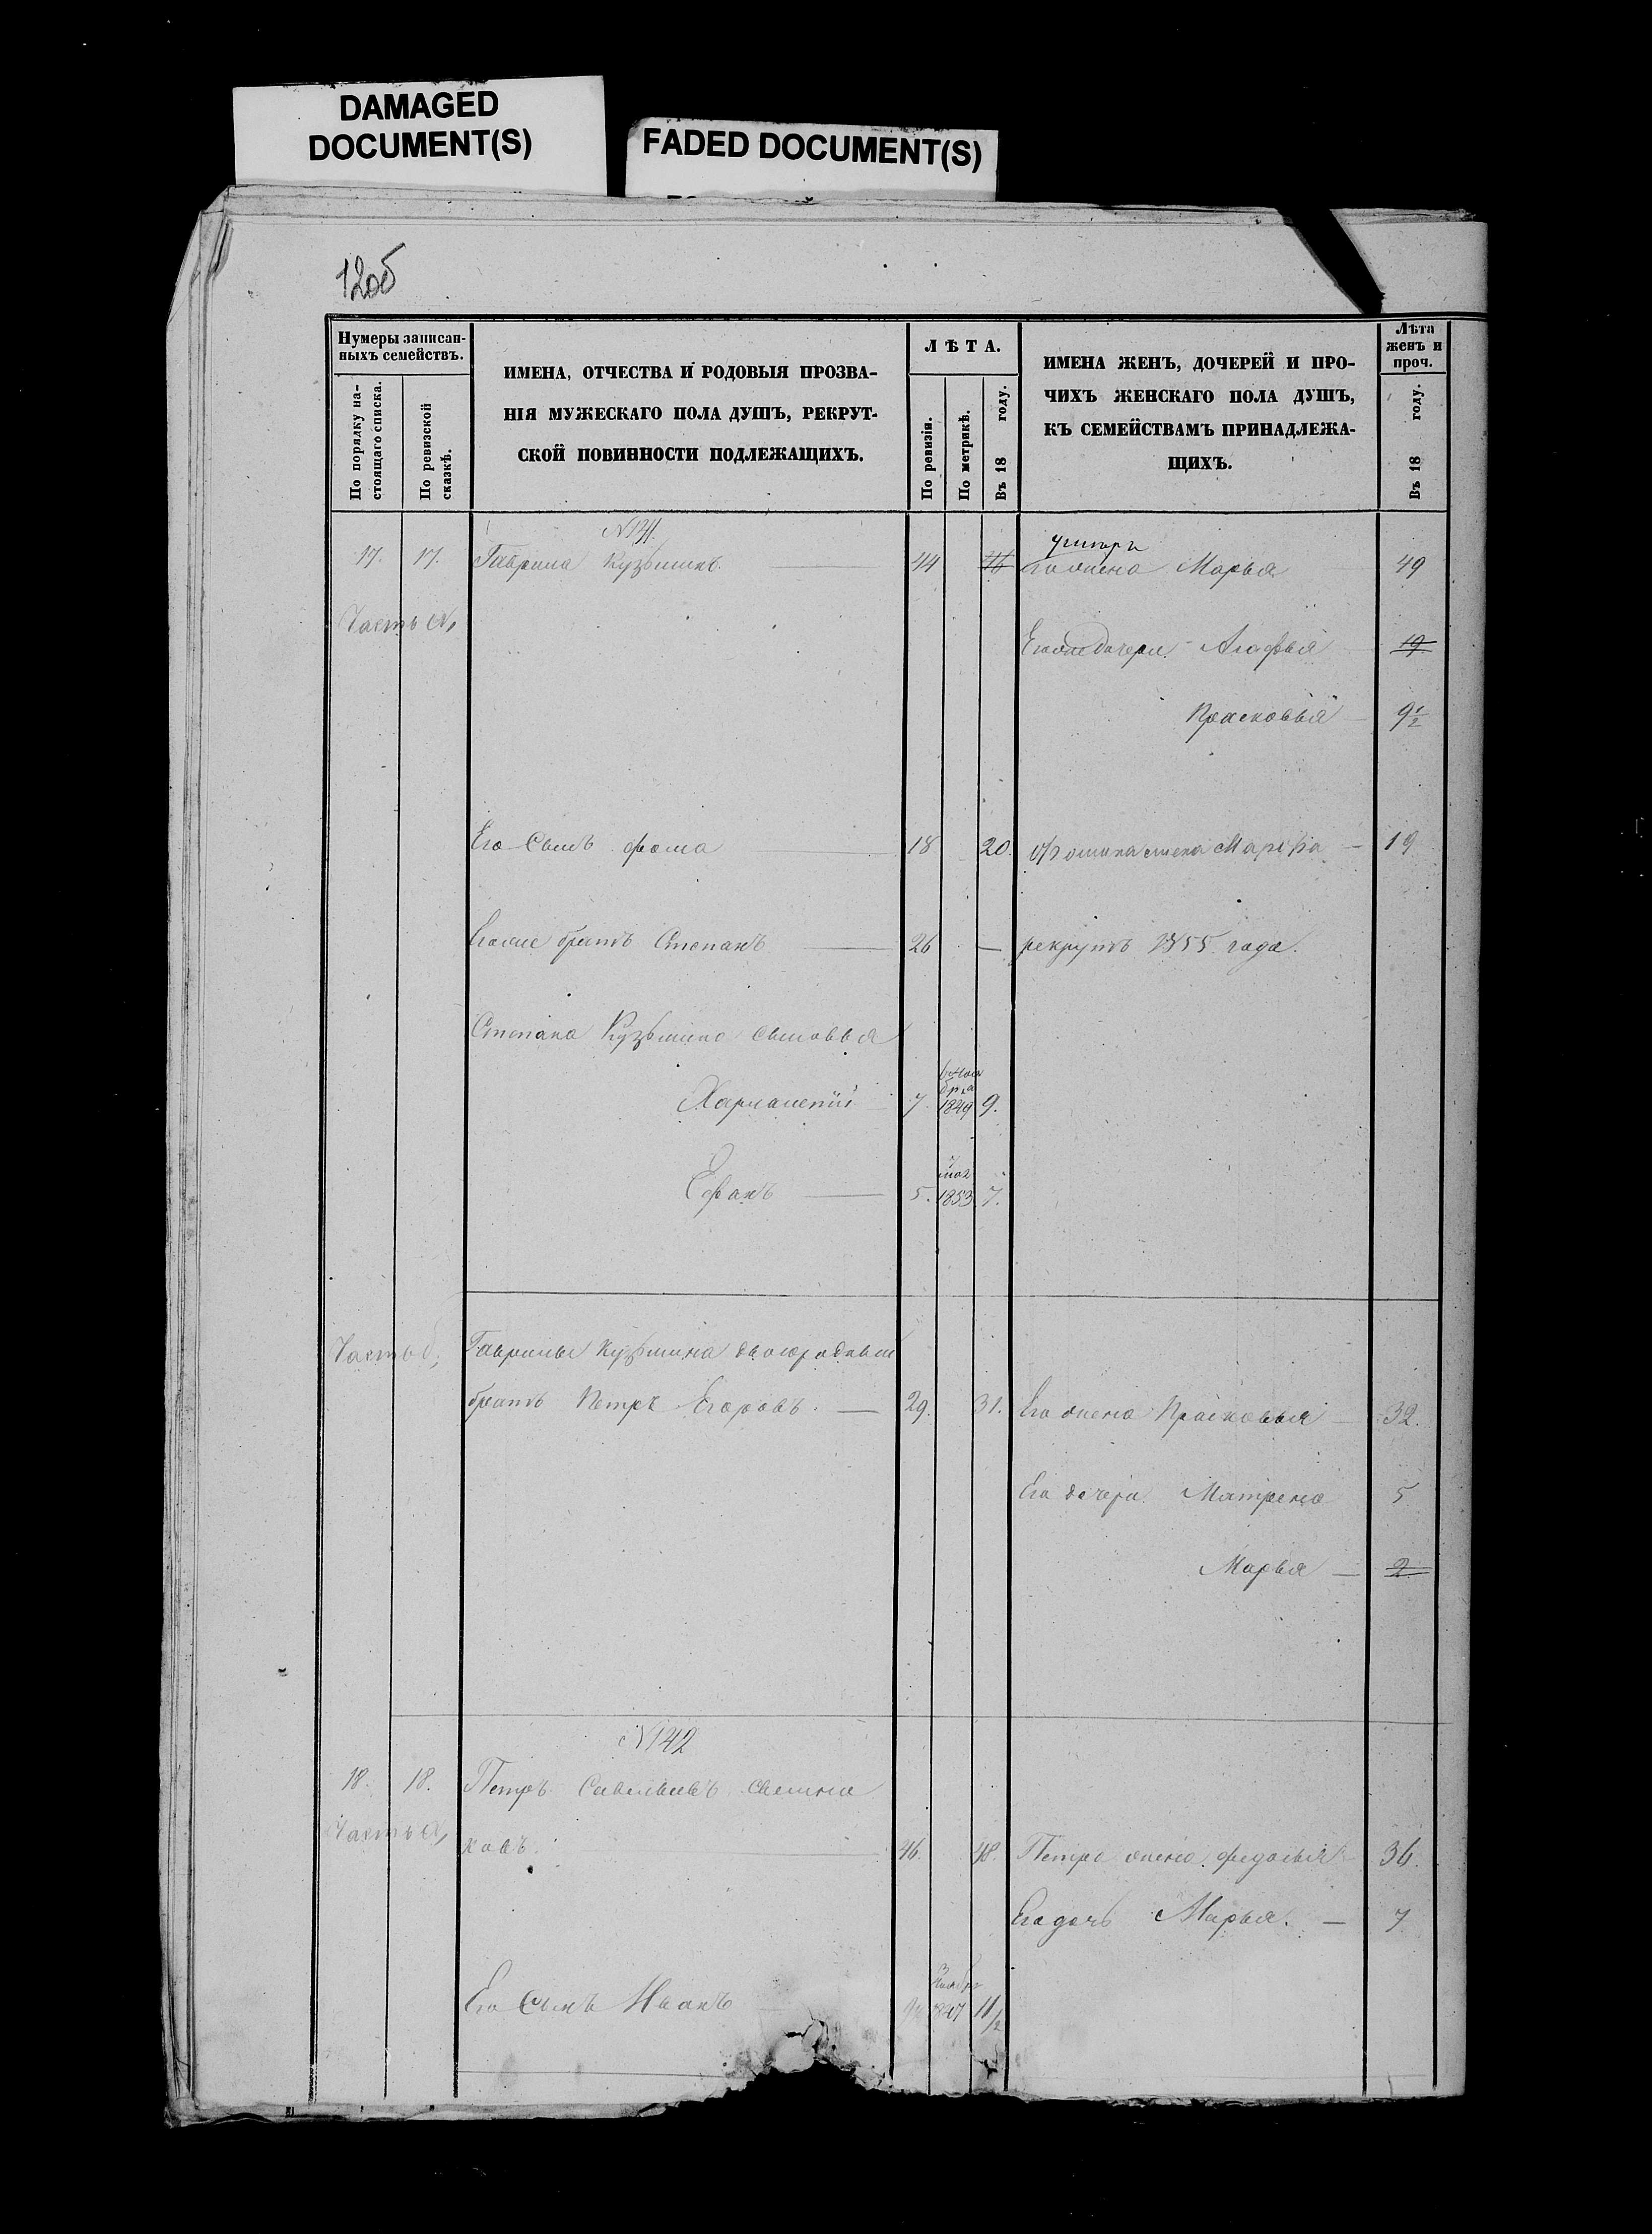 DAMAGED
DOCUMENT(S)
FADED DOCUMENT(S)
12об
Нумеры записан-
ныхъ семействъ.
По порядку на-
стоящаго списка.
По ревизской
сказкѣ.
ИМЕНА, ОТЧЕСТВА И РОДОВЫЯ ПРОЗВА-
НІЯ МУЖЕСКАГО ПОЛА ДУШЪ, РЕКРУТ-
СКОЙ ПОВИННОСТИ ПОДЛЕЖАЩИХЪ.
ЛѢТА.
По ревизіи.
По метрикѣ.
Въ 18 году.
ИМЕНА ЖЕНЪ, ДОЧЕРЕЙ И ПРО-
ЧИХЪ ЖЕНСКАГО ПОЛА ДУШЪ,
КЪ СЕМЕЙСТВАМЪ ПРИНАДЛЕЖА-
ЩИХЪ.
Лѣта
женъ и
проч.
Въ 18 году.
17. 17. Гаврила Кузьминъ. 44 46 его жена Марья 49
Часть
Его дочери Агафья 19
Прасковья 9 1/2
Его Сынъ фома 18 20. жена Марфа 19
братъ Степанъ 26 — рекрутъ 1855 года.
Степана Кузьмина сыновья
Харлампій 7. 1849 9.
Ефанъ 5. 1853 7.
Часть
Гаврилы Кузьмина двоюродный
братъ Петръ Егоровъ. 29. 31. Его жена Прасковья 32.
Его дочери Матрена 5
Марья 2
№142
18. 18. Петръ Савельевъ
Часть
ковъ. 46. 48. Петра жена 36.
Его дочь Марья. 7
Его Сынъ Иванъ 1847 11/2